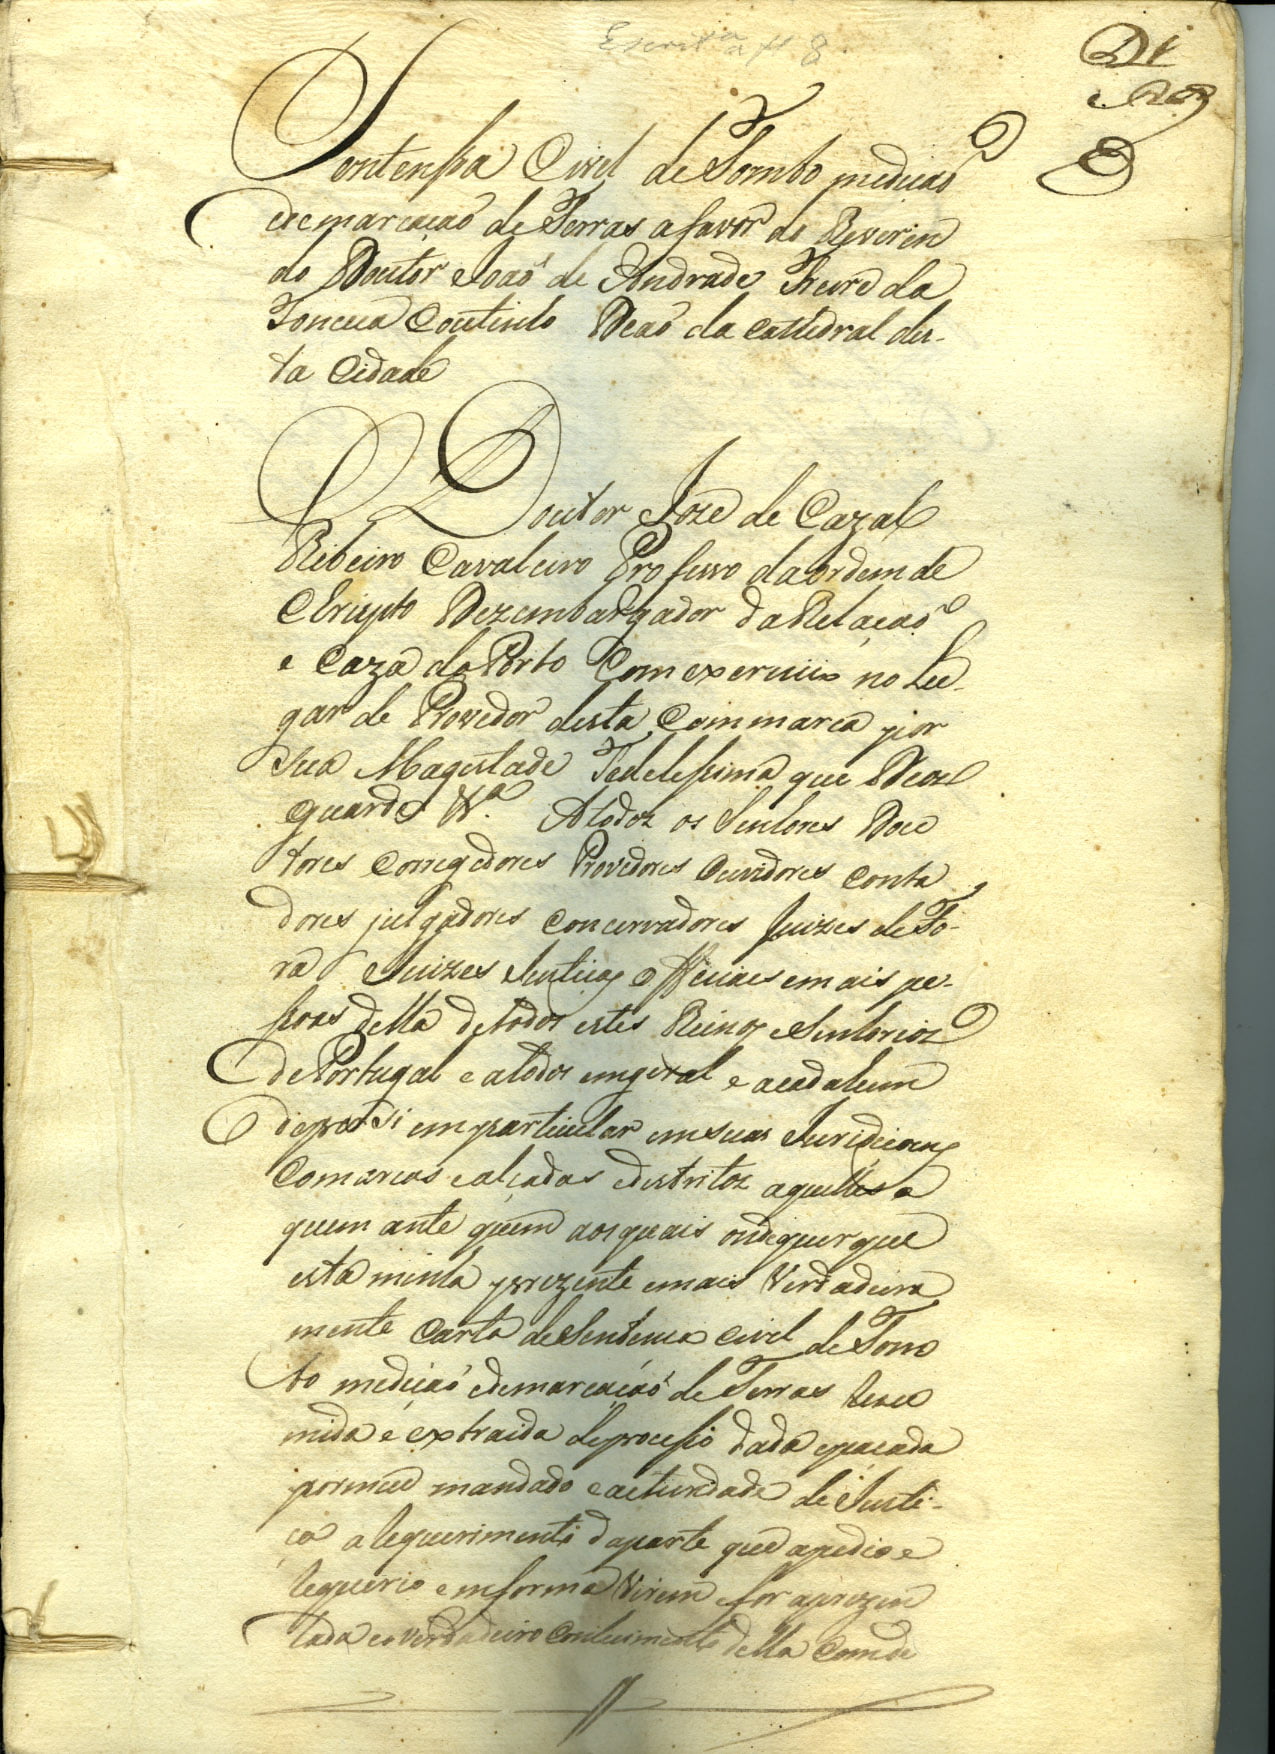 Sentensa Civel de Tombo medicaõ
e demarcaçaõ de Terras a favor do Reveren
do Doutor Joaõ de Andrade Freire da
Fonceca Coutinho Deaõ da Cathedral des-
ta Cidade
O Doutor Joze de Cazal
Ribeiro Cavaleiro Professo da ordem de
Christo Dezembargador da Relaçaõ
e Caza do Porto Com exercicio no Lu-
gar de Provedor desta Commarca por
Sua Magestade Fedelessima que Deos
guarde &ª. A todoz os Senhores Dou
tores Corregedores Provedores Ouvidores conta
dores julgadores Concervadores Juizes de Fo-
ra e Juizes Justiças Officiaes e mais pe-
ssoas della de todos estes Reinos e Senhorioz
de Portugal e a todos em geral e a cada hum
de per si em particular em suas Juridiçoens
Comarcas e alçadas e destritoz aquelles a
quem ante quem aos quais onde quer que
esta minha prezente e mais Verdadeira
mente Carta de Sentença Civel de Tom
bo mediçaõ e demarcaçaõ de Terras Resu
mida e extraida do processo dada e paçada
por meu mandado e auturidade de Justi-
ça a Requerimento da parte que a pedio e
Requerio em forma Virem e for aprezen
tada e o verdadeiro Conhecimento della Com de